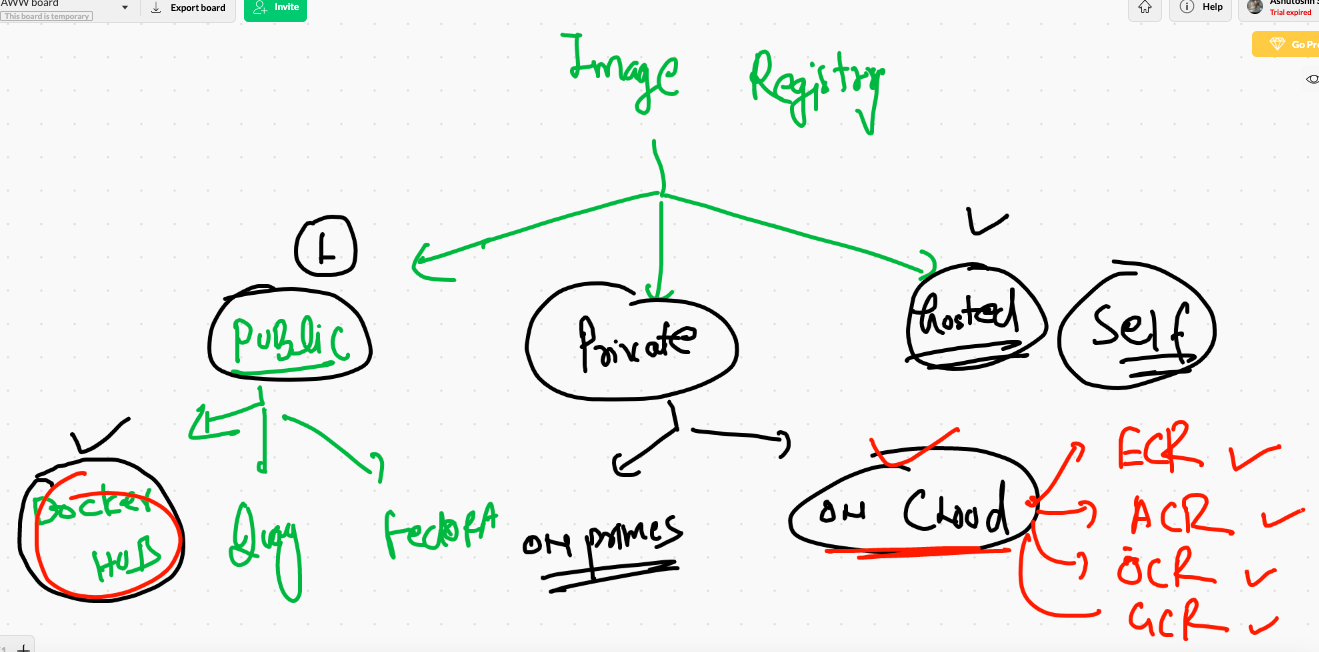 AWW board
This board is temporary
Export board
Invite
Help
Trial expired
Go Pr
Image Registry
1
Public
Private
hosted
Self
Docker
HUB
Quay
Fedora
ON primes
ON Cloud
ECR
ACR
OCR
GCR